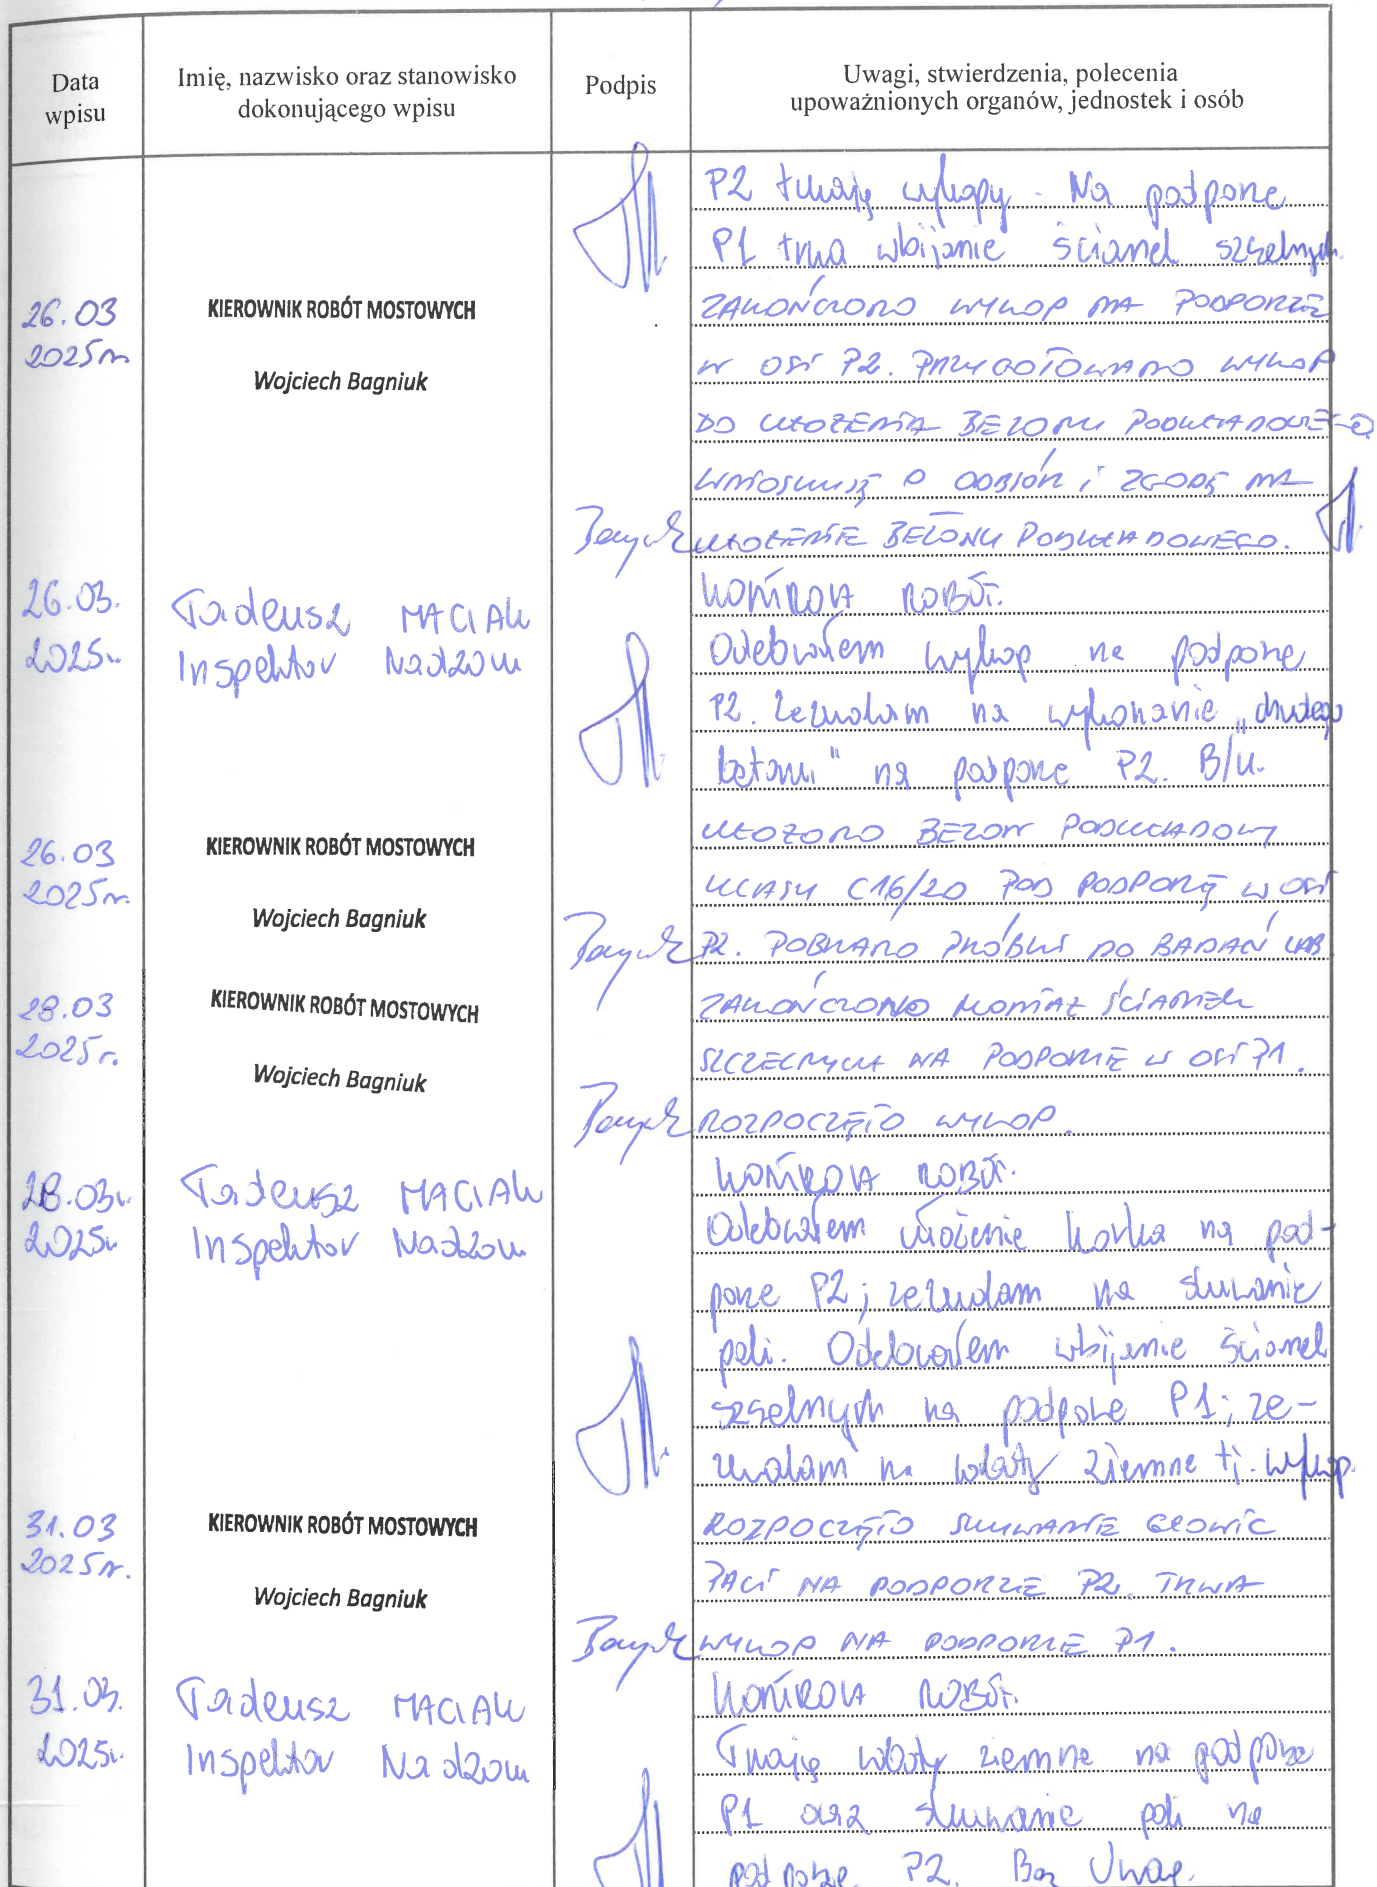 Data
wpisu
Imię, nazwisko oraz stanowisko
dokonującego wpisu
Podpis
Uwagi, stwierdzenia, polecenia
upoważnionych organów, jednostek i osób
P2 trwają wykopy. Na podporze
P1 trwa wbijanie ścianek szczelnych.
26.03
2025r.
KIEROWNIK ROBÓT MOSTOWYCH
Wojciech Bagniuk
ZAKOŃCZONO WYKOP NA PODPORZE
W OSI P2. PRZYGOTOWANO WYKOP
DO UŁOŻENIA BETONU PODKŁADOWEGO.
WNIOSKUJĘ O ODBIÓR I ZGODĘ NA
UŁOŻENIE BETONU PODKŁADOWEGO.
26.03.
2025r.
Tadeusz MACIAK
Inspektor Nadzoru
KONTROLA ROBÓT.
Odebrałem wykop na podporze
P2. Zezwalam na wykonanie „chudego
betonu" na podporze P2. B/U.
26.03
2025r.
KIEROWNIK ROBÓT MOSTOWYCH
Wojciech Bagniuk
UŁOŻONO BETON PODKŁADOWY
KLASY C16/20 POD PODPORĘ W OSI
P2. POBRANO PRÓBKI DO BADAŃ LAB
28.03
2025r.
KIEROWNIK ROBÓT MOSTOWYCH
Wojciech Bagniuk
ZAKOŃCZONO MONTAŻ ŚCIANEK
SZCZELNYCH NA PODPORZE W OSI P1.
ROZPOCZĘTO WYKOP.
28.03r.
2025r.
Tadeusz MACIAK
Inspektor Nadzoru
KONTROLA ROBÓT.
Odebrałem ułożenie korka na pod-
porze P2; zezwalam na skuwanie
pali. Odebrałem wbijanie ścianek
szczelnych na podporze P1; ze-
zwalam na roboty ziemne tj. wykop.
31.03
2025r.
KIEROWNIK ROBÓT MOSTOWYCH
Wojciech Bagniuk
ROZPOCZĘTO SKUWANIE GŁOWIC
PALI NA PODPORZE P2. TRWA
WYKOP NA PODPORZE P1.
31.03.
2025r.
Tadeusz MACIAK
Inspektor Nadzoru
KONTROLA ROBÓT.
Trwają roboty ziemne na podporze
P1 oraz skuwanie pali na
podporze P2. Bez Uwag.